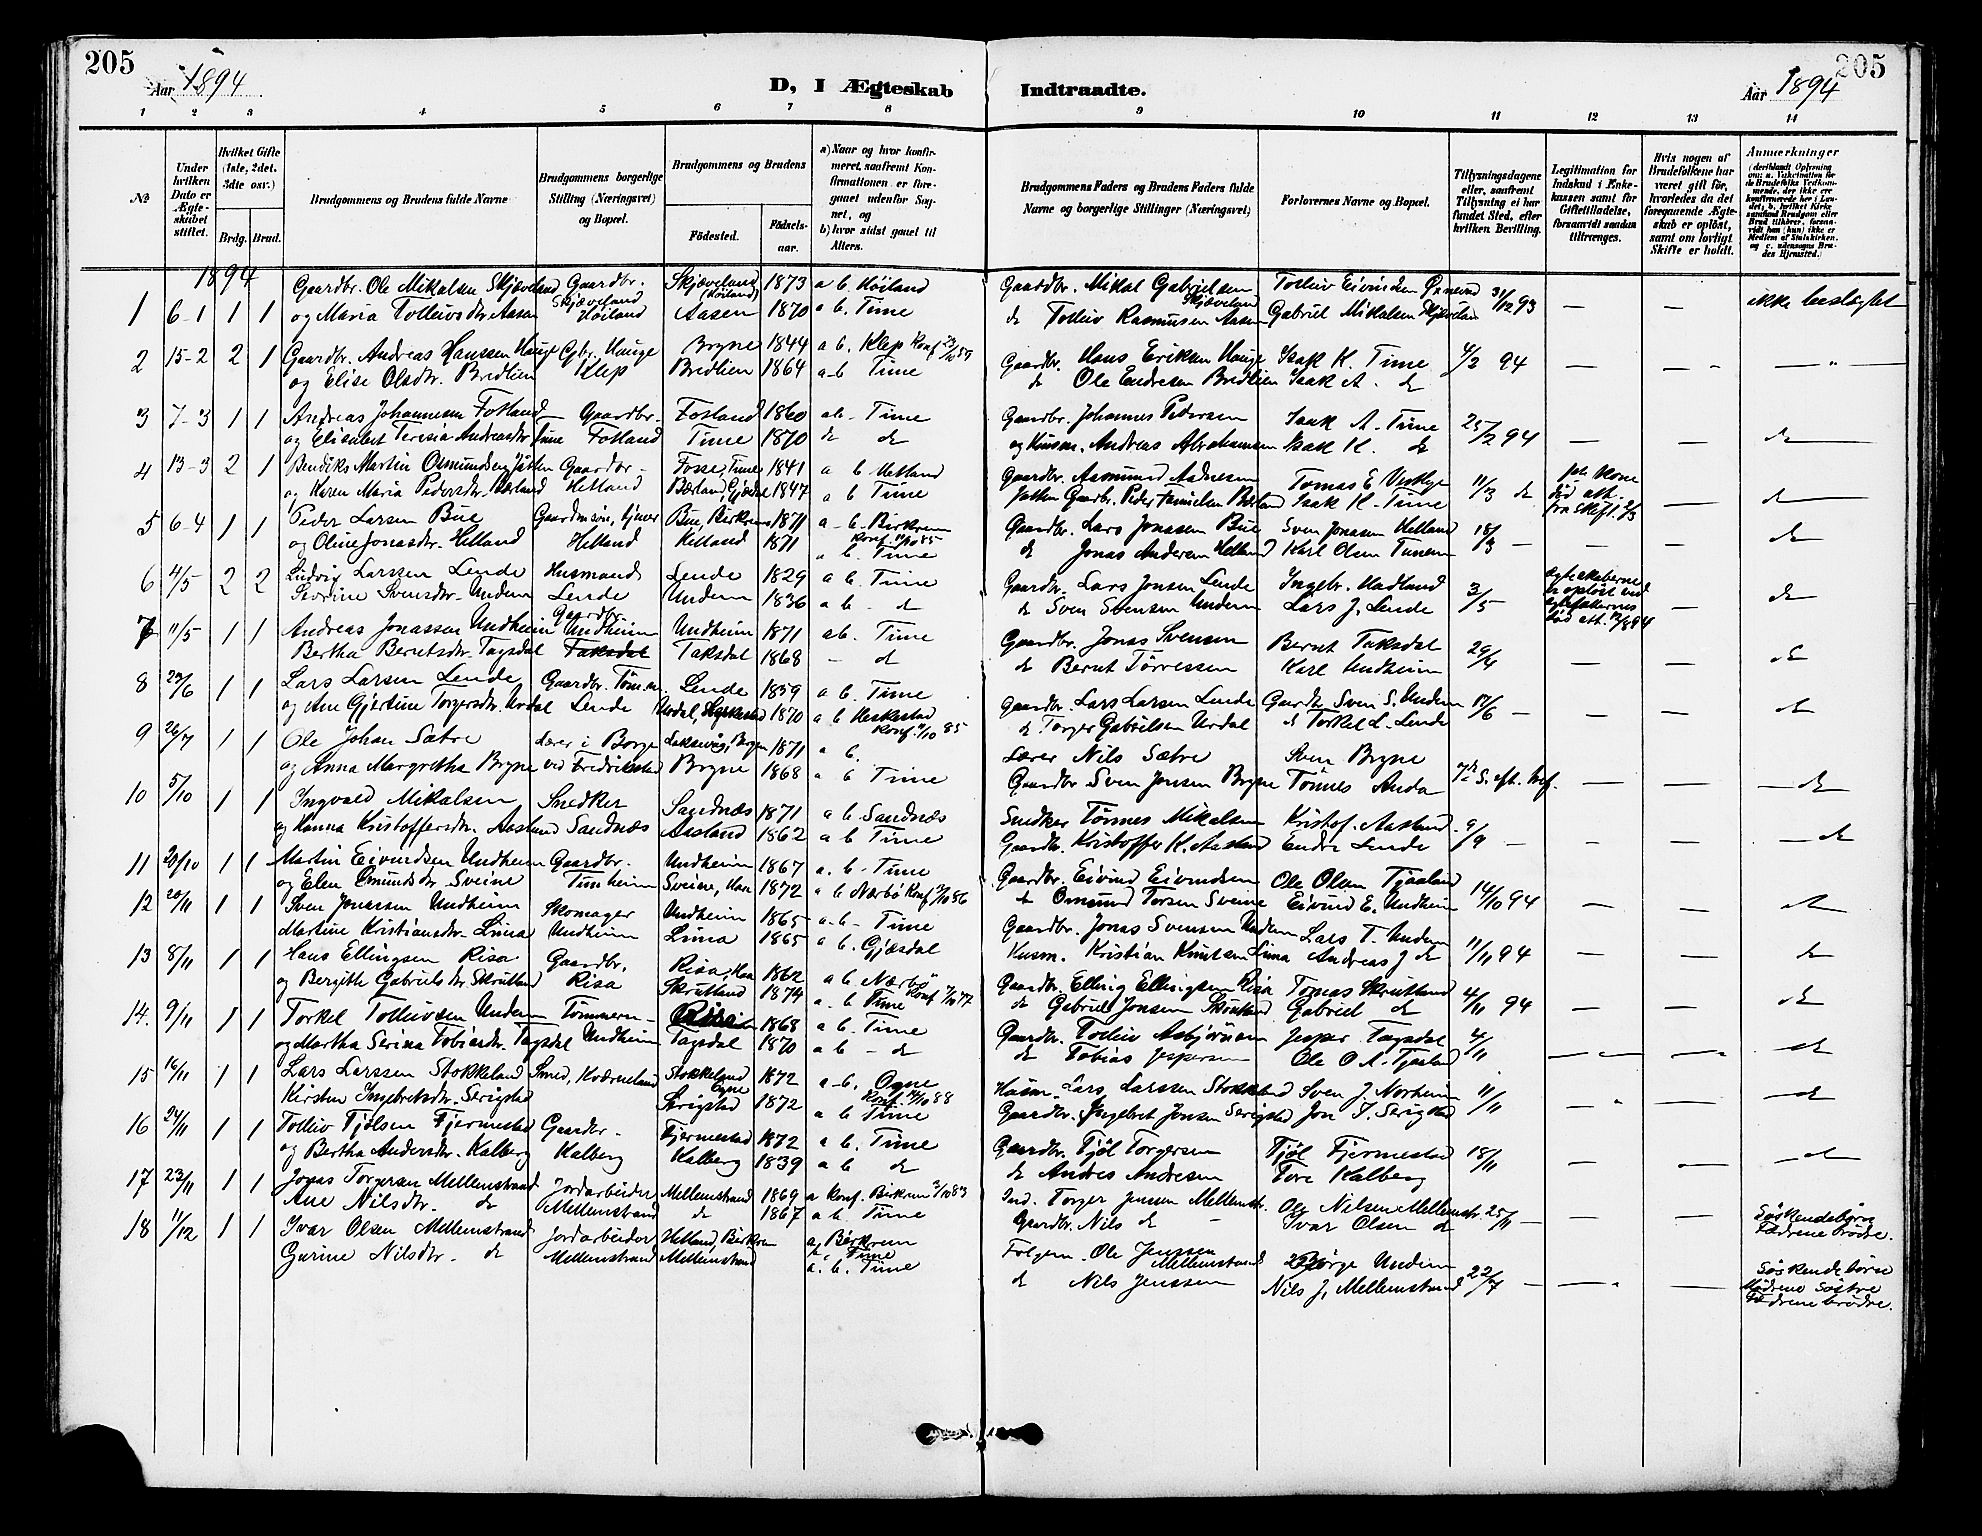 205
Aar 1894
D, I Ægteskab Indtraadte.
Aar 1894
205
1 2 3 4 5 6 7 8 9 10 11 12 13 14
№
Under hvilken Dato er Ægteskabet stiftet.
Hvilket Gifte (1ste, 2det, 3dte osv.)
Brdg. Brud.
Brudgommens og Brudens fulde Navne
Brudgommens borgerlige Stilling (Næringsvei) og Bopæl.
Brudgommens og Brudens
Fødested. Fødselsaar.
a) Naar og hvor konfirmeret, saafremt Konfirmationen er foregaaet udenfor Sognet, og
b) hvor sidst gaaet til Alters.
Brudgommens Faders og Brudens Faders fulde Navne og borgerlige Stillinger (Næringsvei)
Forlovernes Navne og Bopæl.
Tillysningsdagene eller, saafremt Tillysning ei har fundet Sted, efter hvilken Bevilling.
Legitimation for Indskud i Enkekassen samt for Giftetilladelse, forsaavidt saadan tiltrænges.
Hvis nogen af Brudefolkene har været gift før, hvorledes da det foregaaende Ægteskab er opløst, samt om lovligt Skifte er holdt.
Anmærkninger
1894
1 6-1 1 1 Gaardbr. Ole Mikalsen Skjæveland Gaardbr. Skjæveland (Høiland) 1873 a b. Høiland Gaardbr. Mikal Gabrielsen Skjæveland Tollev Eivindsen 31/12 93 — — ikke beslægtet
og Maria Tollevsdtr Aasen Skjæveland Høiland Aasen 1870 a b. Time de Tollev Rasmusen Aasen Gabriel Mikalsen Skjævelan
2 15-2 2 1 Gaardbr. Andreas Hanssen Hauge Gbr. Hauge Bryne 1844 a b. Klep Konf Gaardbr. Hans Eriksen Hauge Isak K. Time 4/2 94 — — " —
og Elise Olsdtr. Bredlien Klep Bredlien 1864 a-b Time de Ole Endresen Bredlien Isak A. de
3 7-3 1 1 Andreas Johannesen Fotland — Gaardbr. Fotland 1860 ab - Time Gaardbr. Johannes Pedersen Isak A. Time 25/2 94 — — de
og Elisabet Teresia Andreasdtr Time Fotland Time 1870 de de og Husm. Andreas Abrahamsen Isak K. de
4 13-3 2 1 Bendiks Martin Osmundsen Jåtten Gaardbr - Fosse, Time 1841 a b Hetland Gaardbr. Aasmund Aadnesen Tomas E Vestly 11/3 de — de
og Karen Maria Pedersdtr. Bærland Hetland Bærland, Gjæsdal 1847 a b Time Jatten Gaardbr. Peder Bærland Isak K - Time
5 6-4 1 1 Peder Larsen Bue Gaardmsøn, tjener Bue, Birkrem 1871 a - b - Birkrem Gaardbr. Lars Jonassen Bue Sven Jonasen Hetland 18/3 — — — de
og Oline Jonasdtr. Helland Helland Helland 1871 a b. Time de Jonas Andersen Helland Karl Olsen Tunem
6 4/5 2 2 Ludvig Larssen Lende Husmand Lende 1829 a b. Time Gaardbr. Lars Jonsen Lende Ingebr. Hadland 3/5 ægteskaberne er opløst ved ægtefællernes død att. — de
Severine Svensdtr. Undem Lende Undem 1836 a b - de de Sven Svensen Undem Lars J. Lende
7 11/5 1 1 Andreas Jonassen Undheim Gaardbr. Undheim Undheim 1871 ab. Time Gaardbr. Jonas Svensen Bernt Taksdal 29/4 — — de
Bertha Berntsdtr. Tagsdal Taksdal Taksdal 1868 - de de Bernt Tørressen Karl Undheim
8 23/6 1 1 Lars Larsen Lende Gaardbr. Tømm. Lende 1859 a b. Time Gaardbr. Lars Larsen Lende Gaardbr Sven S. Undem 17/6 — — — de
og Ane Gjertine Torgersdtr. Urdal Lende Urdal, Heskestad 1870 a b. Heskestad Konf. 11/10 85 de Torger Gabrielsen Urdal de Torkel L. Lende
9 26/7 1 1 Ole Johan Sætre Lærer i Borge Laksevåg, Bergen 1871 a b. Lærer Nils Sætre Sven Bryne
og Anna Margretha Bryne ved Fredrikstad Bryne 1868 a b Time Gaardbr Sven Jonsen Bryne Tönnes Anda — — de
10 5/10 1 1 Ingvald Mikalsen Snedker Sandnæs 1871 a b Sandnæs Snidker Tönnes Mikalsen Kristof. Aasland 9/9 — — — de
og Hanna Kristoffersdtr. Aasland Sandnæs Aasland 1862 a b Time Gaardbr. Kristoffer K. Aasland Endre Lende
11 20/10 1 1 Martin Eivindsen Undheim Gaardbr. Undheim 1867 a. b. Time Gaardbr. Eivind Eivindsen Ole Olsen Tjaaland 14/10 94 — — de
og Elen Osmundsdtr Sveine Sveine, Haa 1872 a b Nærbø Konf 3/10 86 de Omund Torsen Sveine Eivind E. Undheim
12 20/11 1 1 Sven Jonassen Undheim Skomager Undheim 1865 a-b - Time Gaardbr. Jonas Svensen Undem Lars T. Undem 11/11 94 — — de
Martine Kristiansdtr. Lima Undheim Lima 1865 a b. Gjæsdal Husm. Kristian Knutsen Lima Andreas J de
13 8/11 1 1 Hans Ellingsen Risa Gaardbr. Risa, Haa 1862 a b. Nærbø Konf Gaardbr. Elling Ellingsen Risa Tomas Skrutland 4/11 94 — — de
og Bergitte Gabrielsdtr Skrutland Risa Skrutland 1874 a. b Time de Gabriel Jonsen Skrutland Gabriel de
14. 9/11 1 1 Torkel Tollevsen Undem Tømmerm - 1868 a b. Time Gaardbr. Tollev Asbjörnsen Jesper Tagsdal 4/11 — — de
og Martha Serina Tobiasdtr. Tagsdal Undheim Tagsdal 1870 a b - de de Tobias Jespersen Ole O A. Tjaaland
15 16/11 1 1 Lars Larssen Stokkeland Smed, Kværneland Stokkeland Ogne 1872 a-b. Ogne Konf. 88 Husm. Lars Larssen Stokkeland Sven J. Norheim 11/11 — — de
Kirsten Ingebretsdtr. Serigstad Serigstad 1872 a b Time Gaardbr. Ingebret Jonsen Serigstad Jon T. Serigstad
16 24/11 1 1 Tollev Tjølsen Fjermestad Gaardbr - Fjermestad 1872 a b. Time Gaardbr. Tjøl Torgersen Tjøl Fjermestad 18/11 — — de
og Bertha Andersdtr. Kalberg Kalberg Kalberg 1839 a b de de Andres Andresen Tore Kalberg
17 23/11 1 1 Jonas Torgersen Mellemstrand Jordarbeider Mellemstrand 1869 a Konf. Birkrem 3/10 83 Ind. Torger Jensen Mellemstr. Ole Nilsen Mellemstr. 25/11 — — Søskendebørn
Ane Nilsdtr. de i Mellemstrand de 1867 a b. Time Gaardbr. Nils de Ivar Olsen de Fædrene brødre.
18 11/12 1 1 Ivar Olsen Mellemstrand Jordarbeider Hetland, Birkrem a, Birkrem b, Time Ole Jenssen Mellemstrand Børge Undem 22/7 — — Søskendebørn
Gurine Nilsdtr. de Mellemstrand Mellemstrand a. b. Time de Nils Jenssen Nils J. Mellemstrand Mødrene Søstre Fædrene brødre.